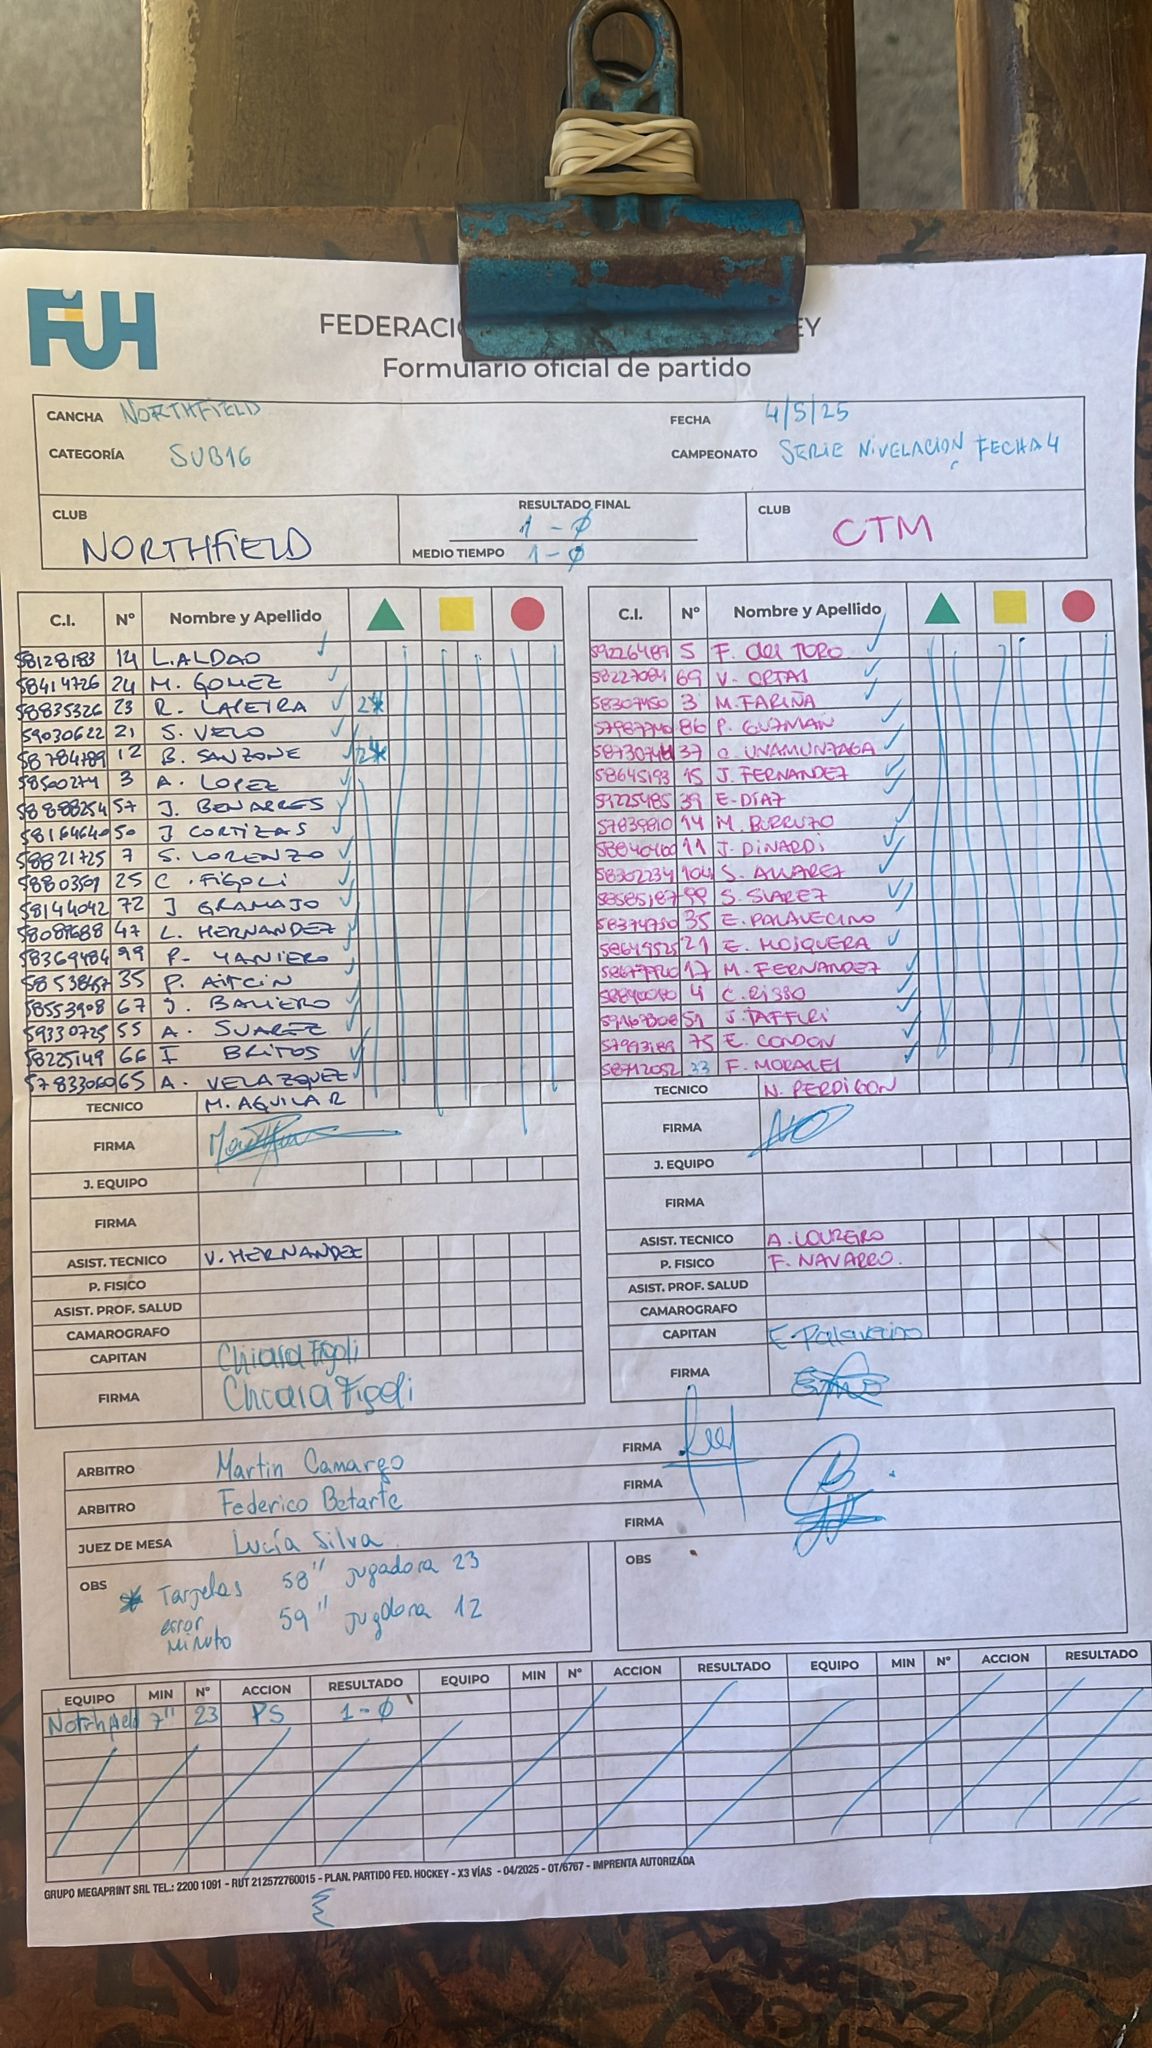 FUH
FEDERACI EY
Formulario oficial de partido
CANCHA NORTHFIELD FECHA 4/5/25
CATEGORÍA SUB16 CAMPEONATO SERIE NIVELACION FECHA 4
CLUB NORTHFIELD RESULTADO FINAL 1-Ø CLUB CTM
MEDIO TIEMPO 1-Ø
C.I. Nº Nombre y Apellido C.I. Nº Nombre y Apellido
58128183 14 L. ALDAO 59226489 5 F. del TORO
58414726 24 M. GOMEZ 58227084 69 V. ORTAS
58835326 23 R. LAPEIRA 2* 58307450 3 M. FARIÑA
59030622 21 S. VELO 86 P. GUZMAN
58784789 12 B. SANZONE 2* 37 UNAMUNZAGA
58500274 3 A. LOPEZ 58645193 15 J. FERNANDEZ
58888254 57 J. BENARRES 59225485 39 E. DIAZ
58164640 50 J CORTIZAS 57839810 14 M. BURRUZO
58821725 7 S. LORENZO 11 J. DINARDI
25 C. FIGOLI 58302234 104 S. ALVAREZ
58144042 72 J GRAMAJO 58585187 99 S. SUAREZ
58089688 47 L. HERNANDEZ 58374750 35 E. PALAVECINO
58369484 99 P. YANIERO 58649525 21 E. MOSQUERA
35 P. AITCIN 17 M. FERNANDEZ
58553908 67 J. BALIERO 4 C. RISSO
59330725 55 A. SUAREZ 51 J. TAFFURI
58225149 66 I BRITOS 75 E. CONDON
57833060 65 A. VELAZQUEZ 58712052 33 F. MORALES
TECNICO M. AGUILAR TECNICO N. PERDIGON
FIRMA FIRMA
J. EQUIPO J. EQUIPO
FIRMA FIRMA
ASIST. TECNICO V. HERNANDEZ ASIST. TECNICO A. LOUREIRO
P. FISICO P. FISICO F. NAVARRO.
ASIST. PROF. SALUD ASIST. PROF. SALUD
CAMAROGRAFO CAMAROGRAFO
CAPITAN Chiara Figoli CAPITAN E. Palavecino
FIRMA Chiara Figoli FIRMA
ARBITRO Martin Camargo FIRMA
ARBITRO Federico Betarte FIRMA
JUEZ DE MESA Lucía Silva FIRMA
OBS * Tarjetas 58" jugadora 23 OBS
error 59" jugdora 12
minuto
EQUIPO MIN Nº ACCION RESULTADO EQUIPO MIN Nº ACCION RESULTADO EQUIPO MIN Nº ACCION RESULTADO
Notrhfield 7" 23 PS 1-Ø
GRUPO MEGAPRINT SRL TEL.: 2200 1091 - RUT 212572760015 - PLAN. PARTIDO FED. HOCKEY - X3 VÍAS - 04/2025 - OT/6767 - IMPRENTA AUTORIZADA